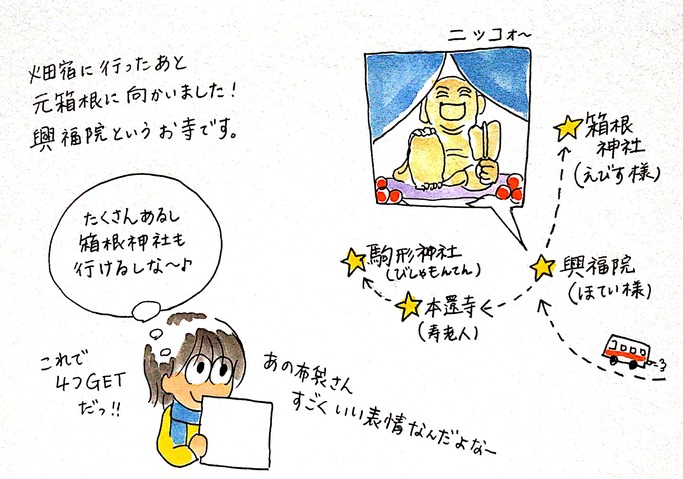 畑宿に行ったあと
元箱根に向かいました!
興福院というお寺です。
ニッコォ〜
箱根
神社
(えびす様)
たくさんあるし
箱根神社も
行けるしな〜♪
駒形神社
(びしゃもんてん)
興福院
(ほてい様)
本還寺
(寿老人)
これで
4つGET
だっ!!
あの布袋さん
すごくいい表情なんだよなー